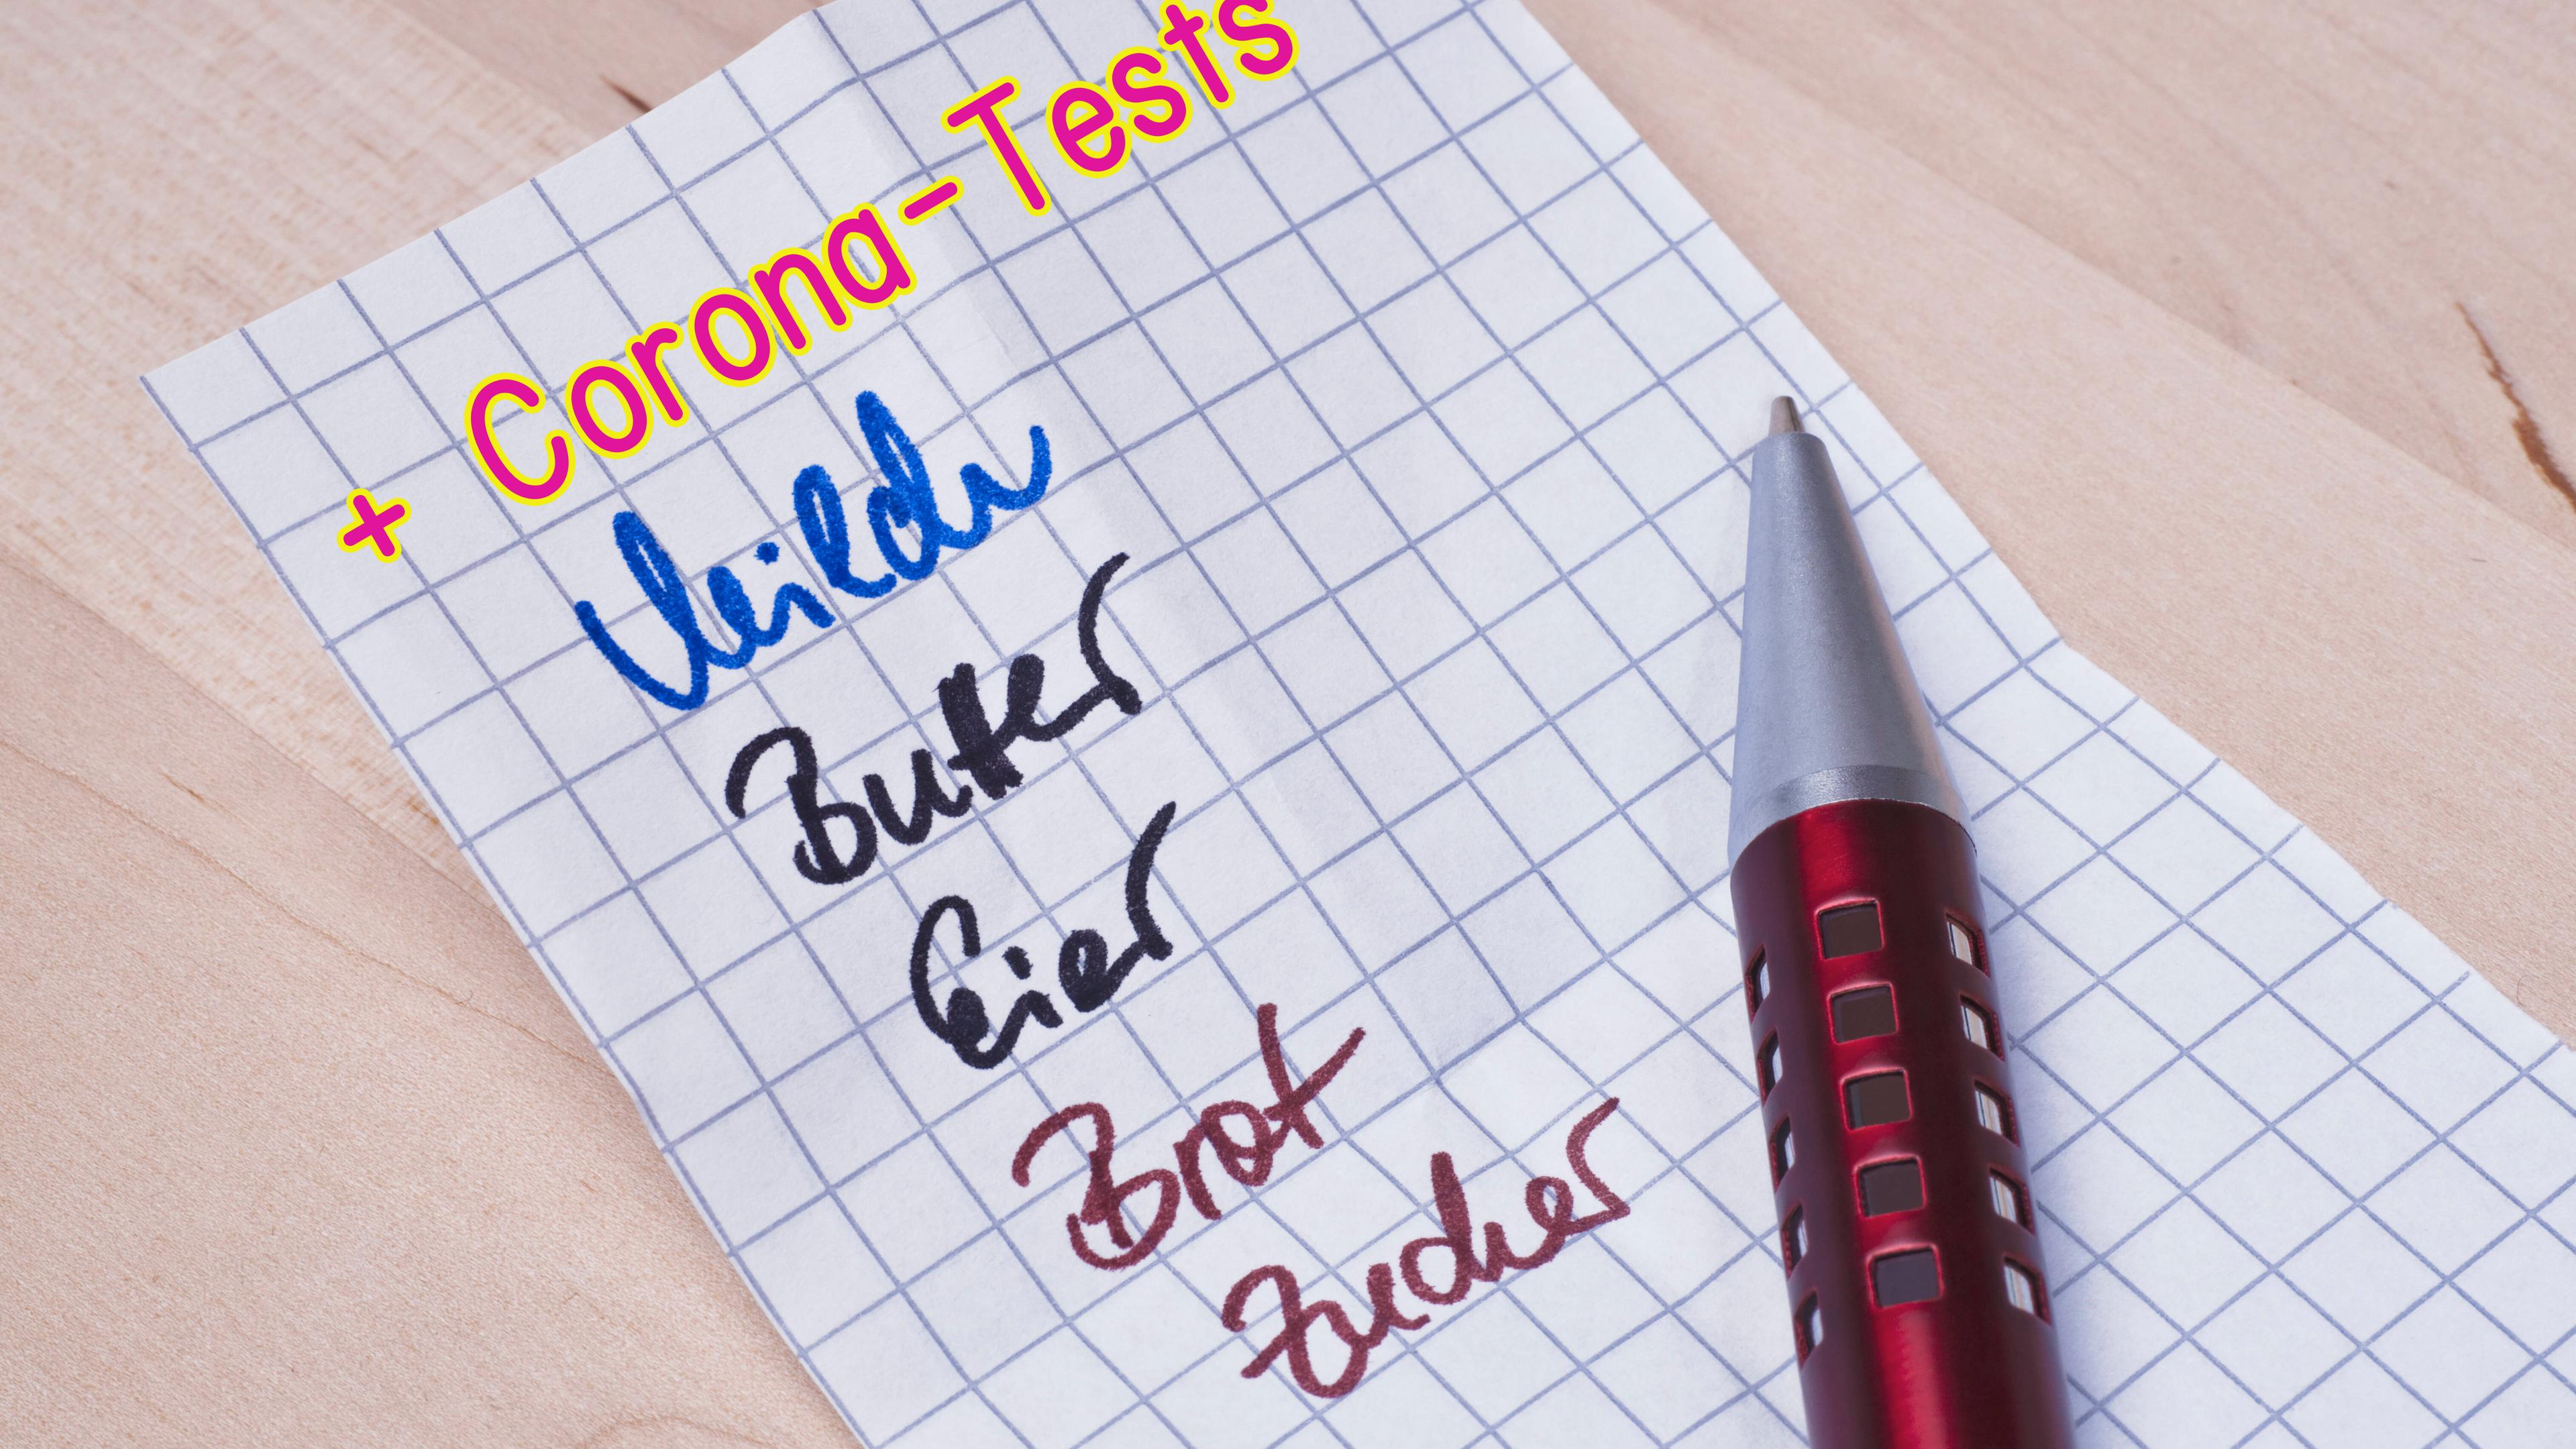 + Corona-Tests
Milch
Butter
Eier
Brot
Zucker